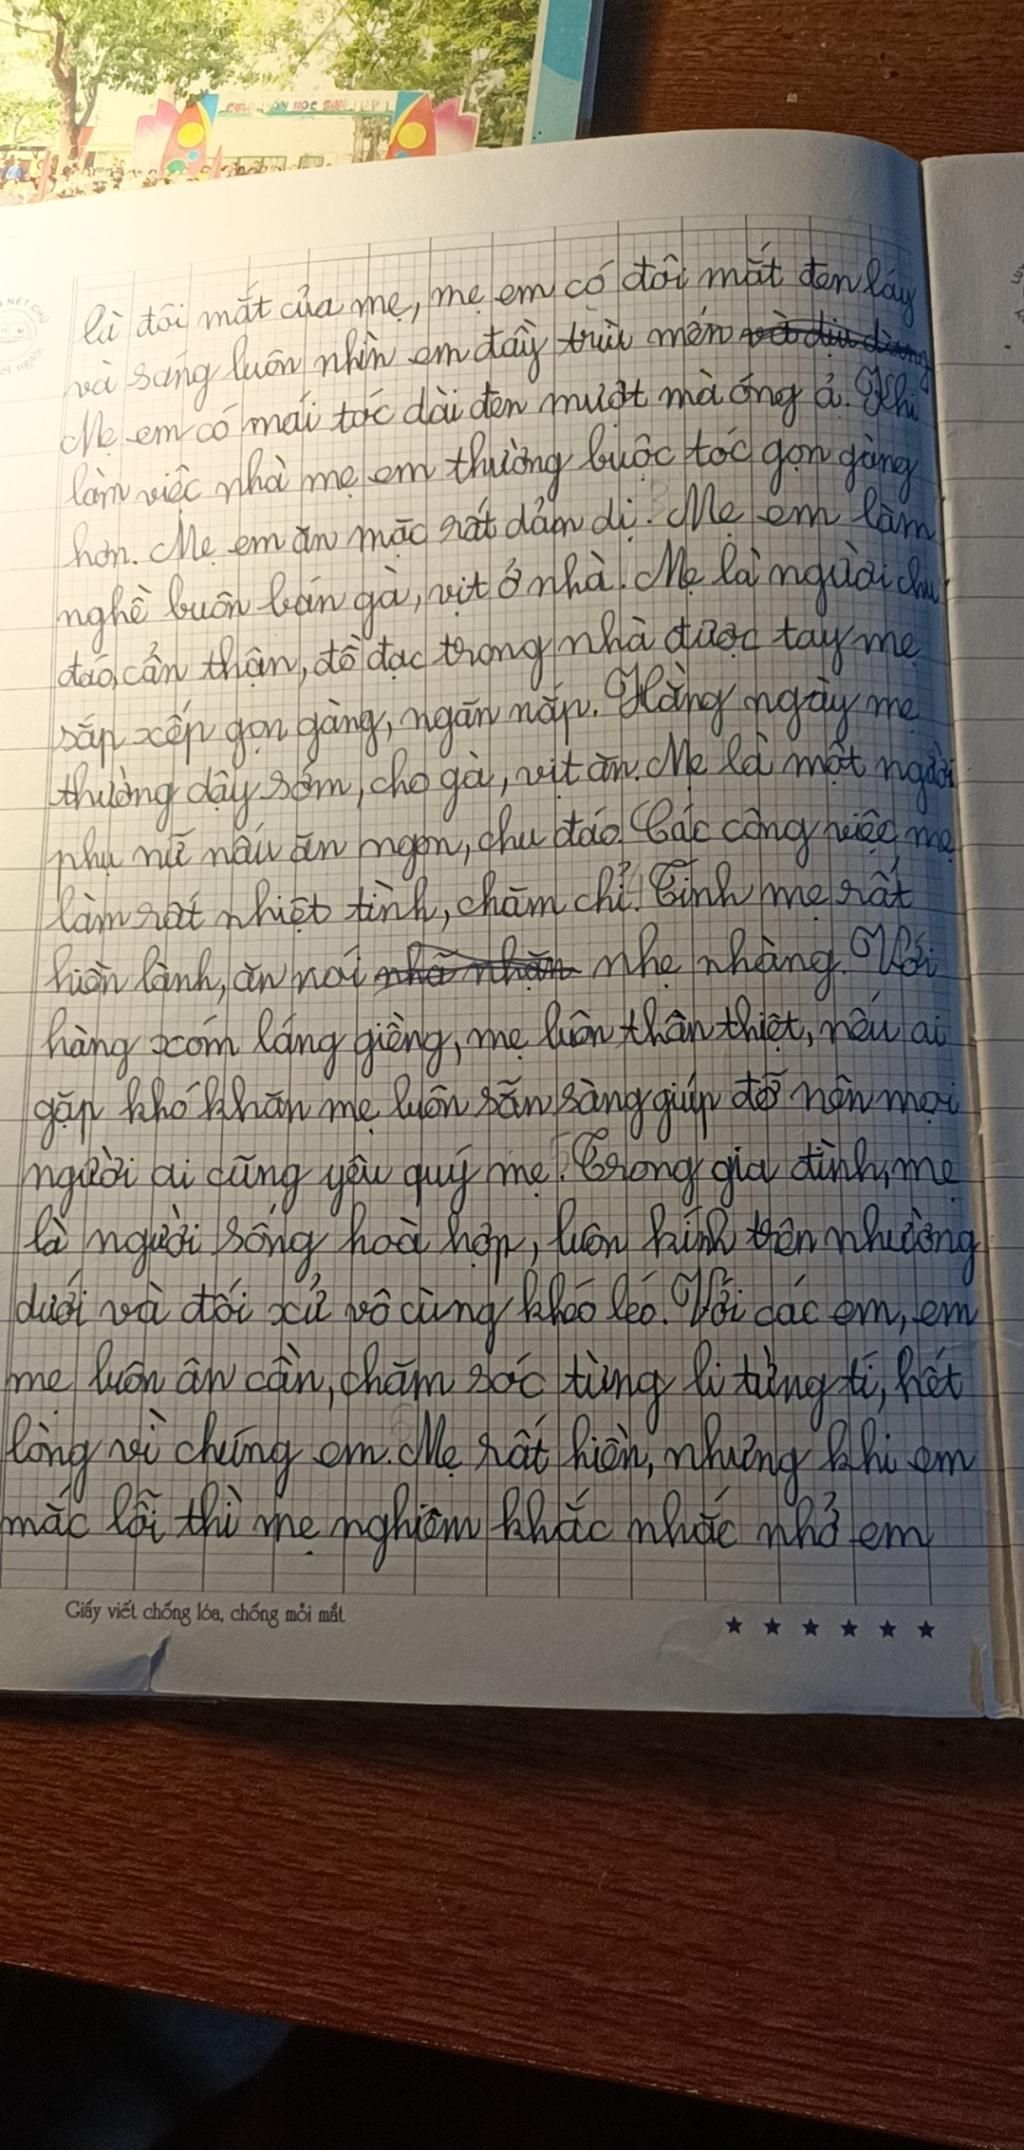 CHÀO ĐÓN HỌC SINH LỚP 1
là đôi mắt của mẹ, mẹ em có đôi mắt đen láy
và sáng luôn nhìn em đầy trìu mến và dịu dàng
Mẹ em có mái tóc dài đen mượt mà óng ả. Khi
làm việc nhà mẹ em thường buộc tóc gọn gàng
hơn. Mẹ em ăn mặc rất dảm dị. Mẹ em làm
nghề buôn bán gà, vịt ở nhà. Mẹ là người chu
đáo, cẩn thận, đồ đạc trong nhà được tay mẹ
sắp xếp gọn gàng, ngăn nắp. Hằng ngày mẹ
thường dậy sớm, cho gà, vịt ăn. Mẹ là một người
phụ nữ nấu ăn ngon, chu đáo. Các công việc mẹ
làm rất nhiệt tình, chăm chỉ. Tính mẹ rất
hiền lành, ăn nói nhã nhặn nhẹ nhàng. Với
hàng xóm láng giềng, mẹ luôn thân thiết, nếu ai
gặp khó khăn mẹ luôn sẵn sàng giúp đỡ nên mọi
người ai cũng yêu quý mẹ. Trong gia đình, mẹ
là người sống hoà hợp, luôn kính trên nhường
dưới và đối xử vô cùng khéo léo. Với các em, em
mẹ luôn ân cần, chăm sóc từng li từng tí, hết
lòng vì chúng em. Mẹ rất hiền, nhưng khi em
mắc lỗi thì mẹ nghiêm khắc nhắc nhở em
Giấy viết chống lóa, chống mỏi mắt